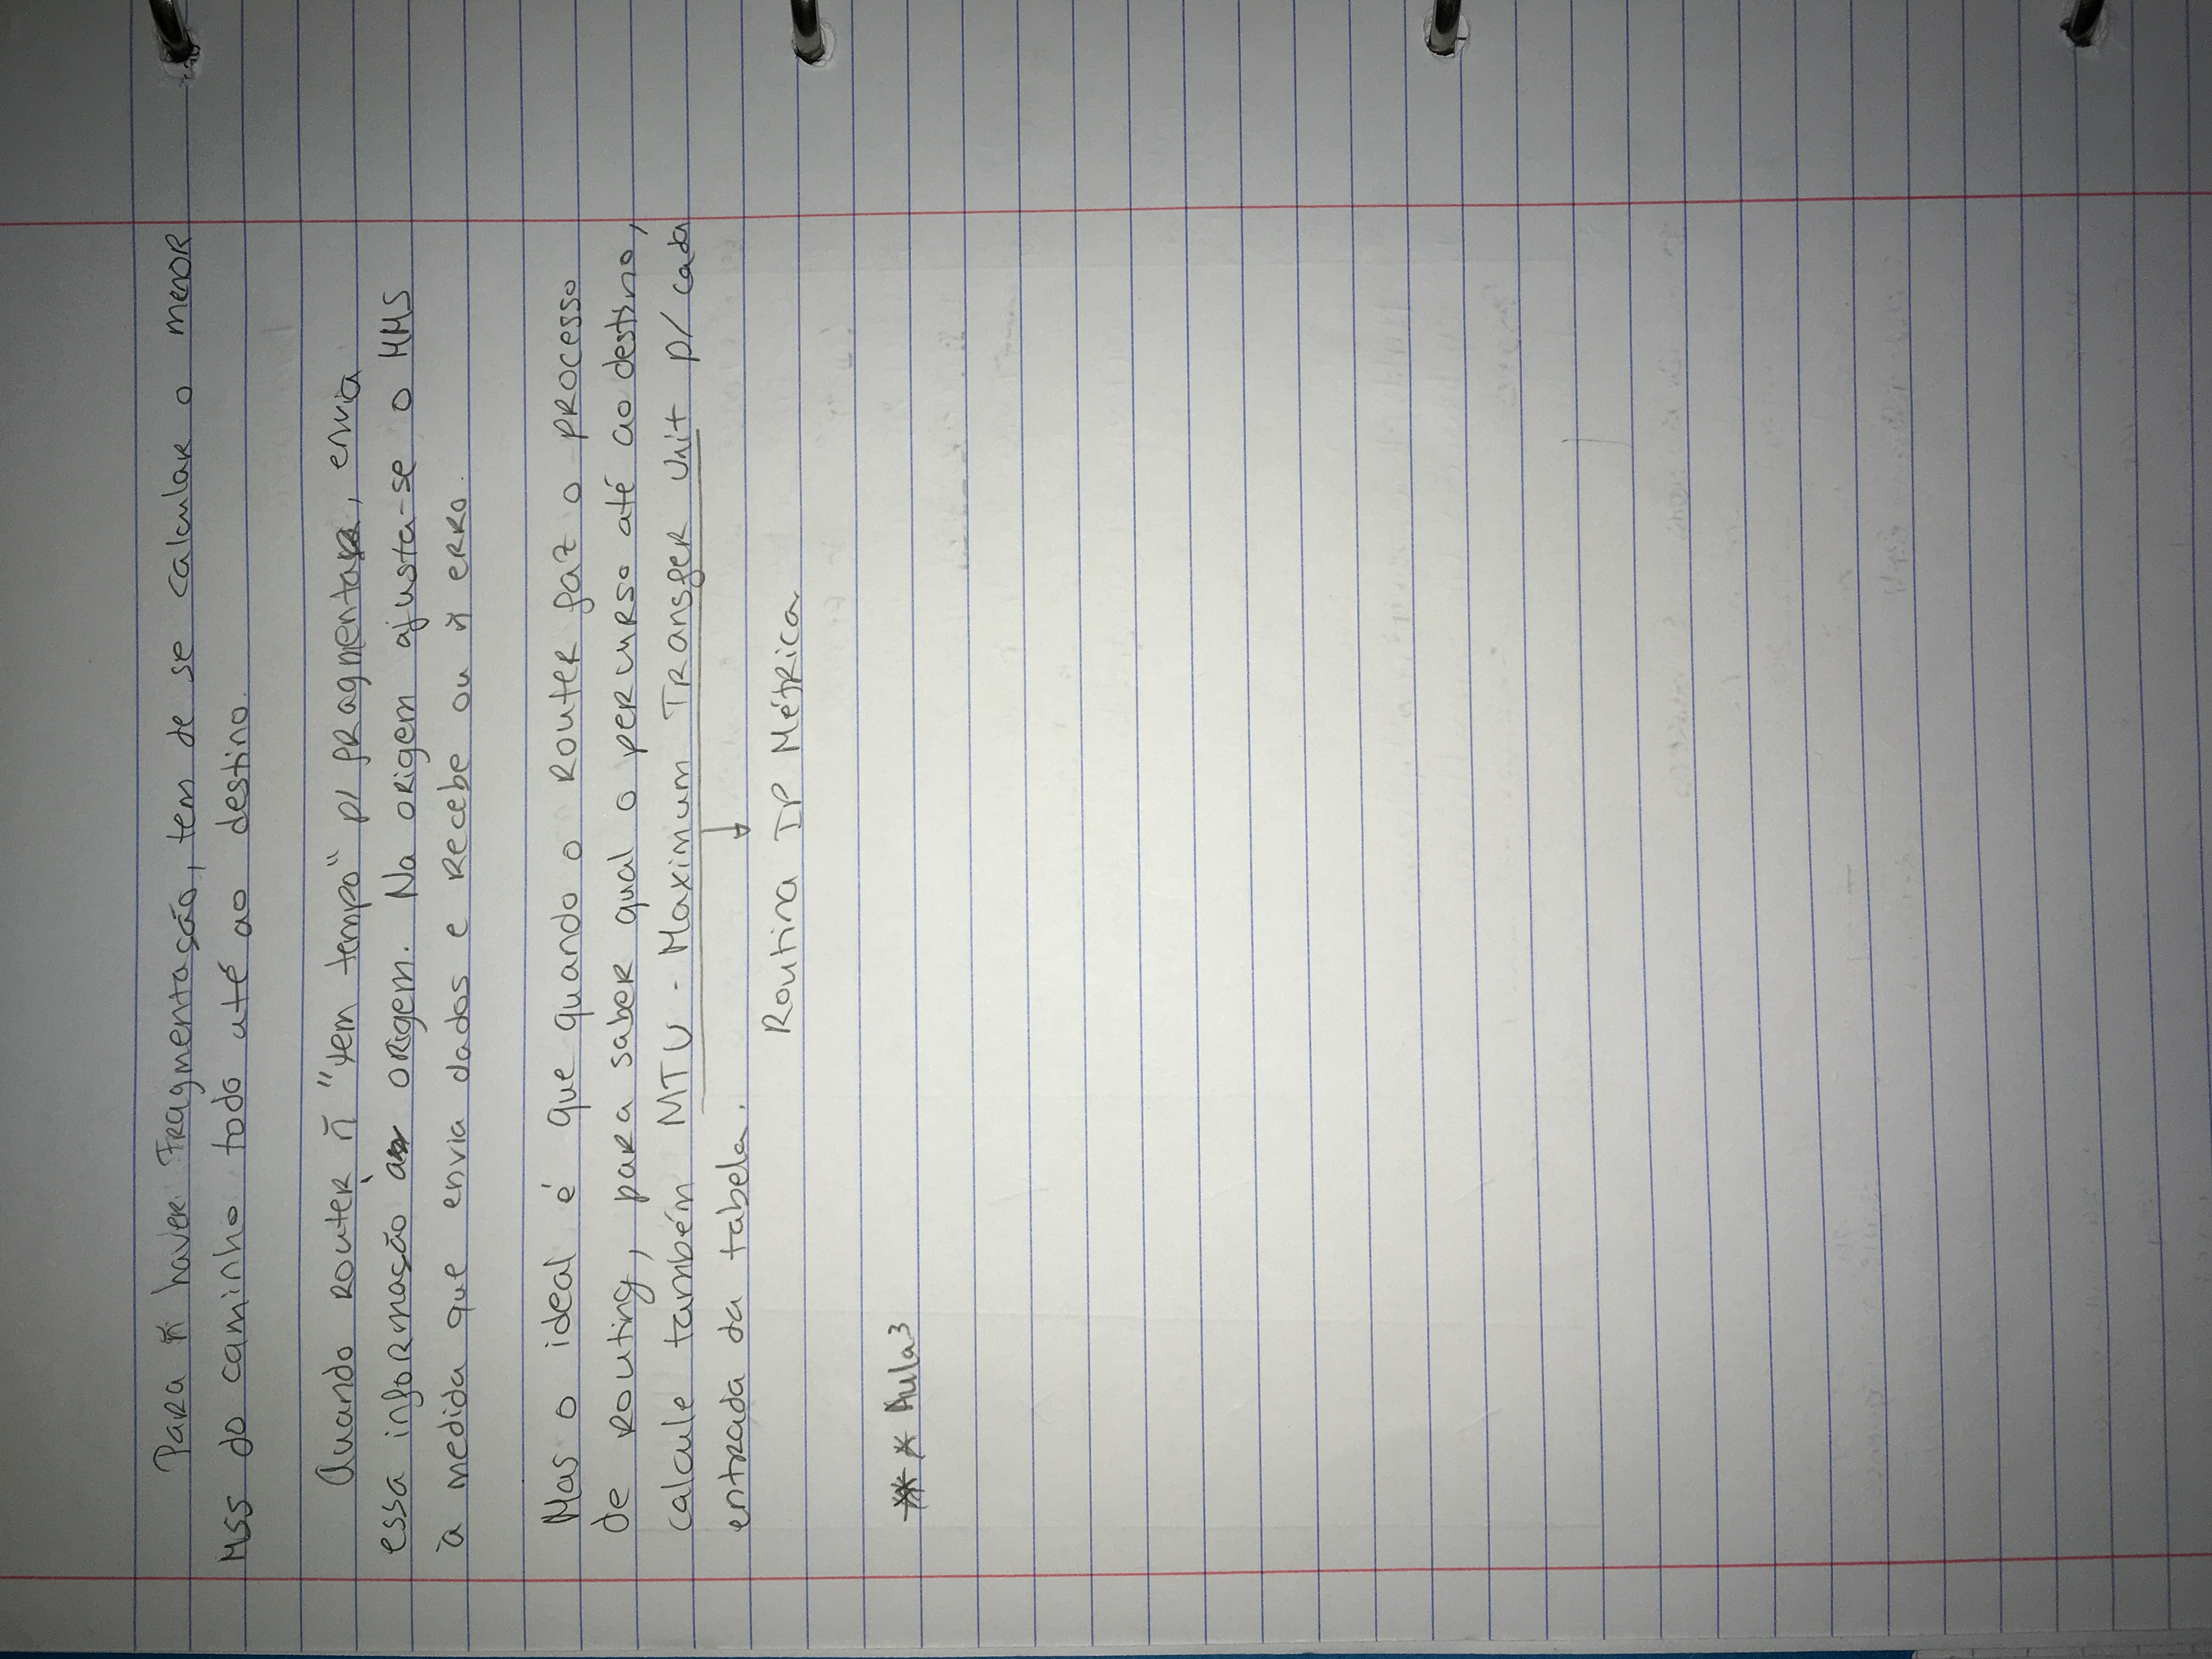 Para ñ haver Fragmentação, tem de se calcular o menor
MSS do caminho todo até ao destino.
Quando router ñ "tem tempo" p/ fragmentar, envia
essa informação à origem. Na origem ajusta-se o MMS
à medida que envia dados e recebe ou ñ erro.
Mas o ideal é que quando o router faz o processo
de routing, para saber qual o percurso até ao destino,
calcule também MTU - Maximum Transfer Unit p/ cada
entrada da tabela.
Routina IP Métrica
* Aula 3